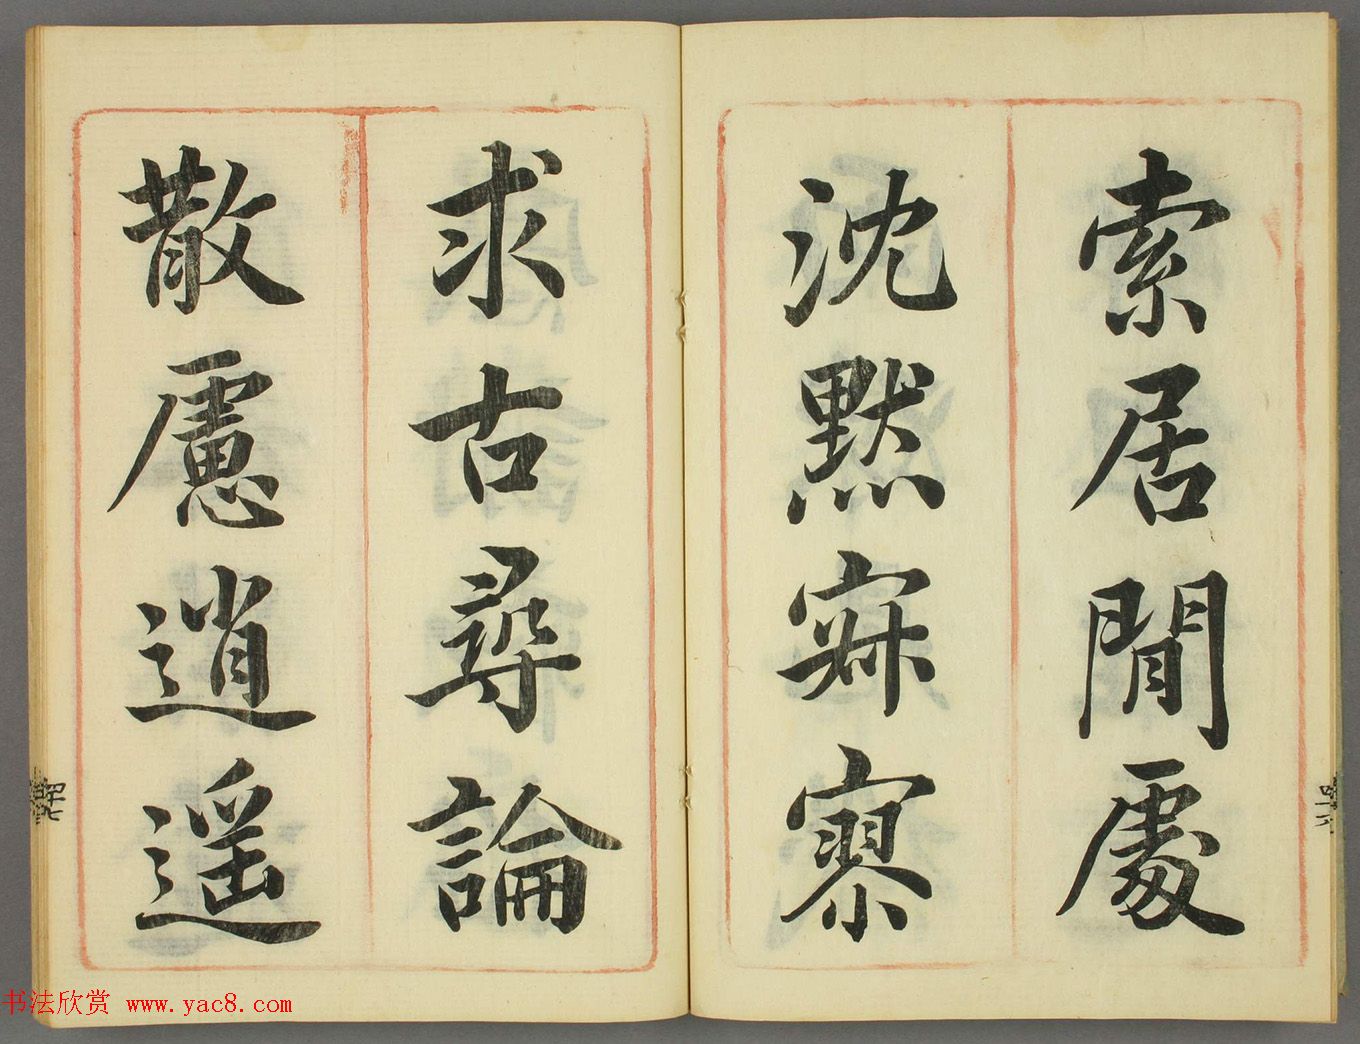 索居閒處
沈默寂寥
求古尋論
散慮逍遥
四十七
書法欣赏 www.yac8.com